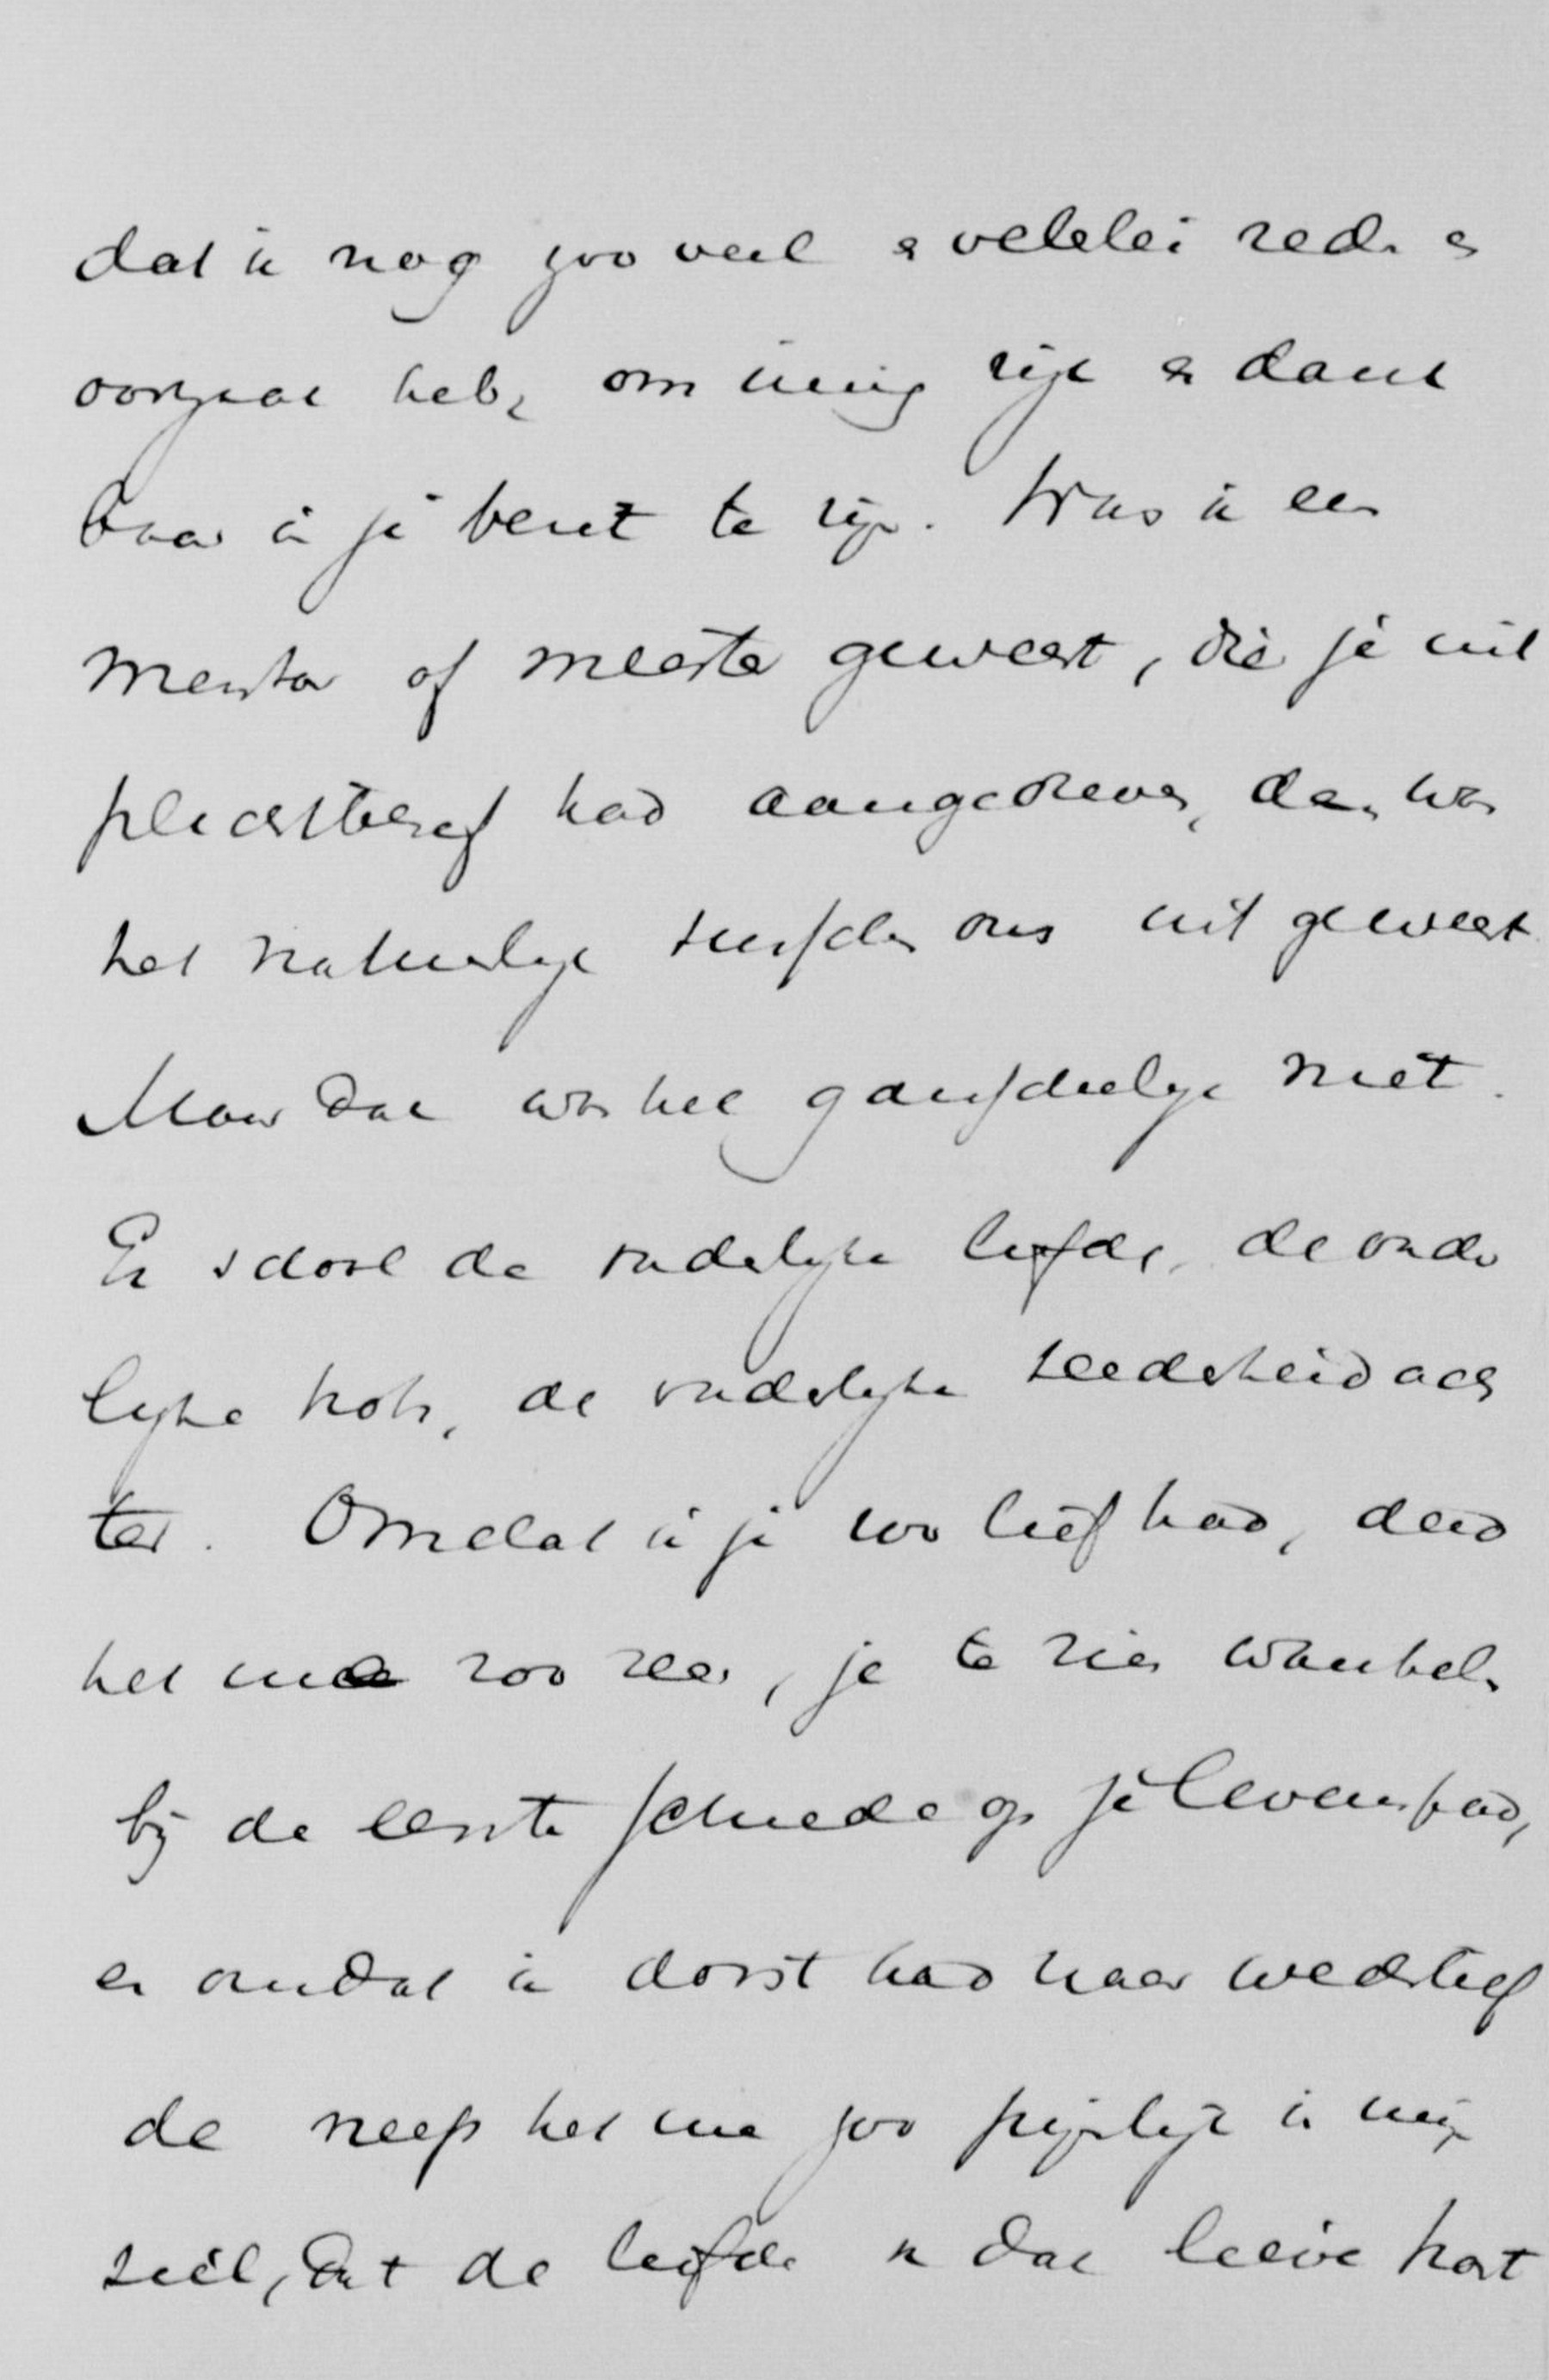 dat ik nog zoo veel en velerlei reden en
oorzaak heb, om innig rijk en dank
baar in je bezit te zijn. Was ik een
mentor of meester geweest, die je uit
plichtbesef had aangedreven, dan was
het natuurlijk tusschen ons uit geweest
Maar dat was het ganschelijk niet.
Er school de vaderlijke liefde, de vader
lijke trots, de vaderlijke teederheid ach
ter. Omdat ik je zoo lief had, deed
het me zoo zeer, je te zien wankelen
bij de eerste schrede op je levenspad,
en omdat ik dorst had naar wederlief
de neep het me zoo pijnlijk in mijn
ziel, dat de liefde in dat lieve hart